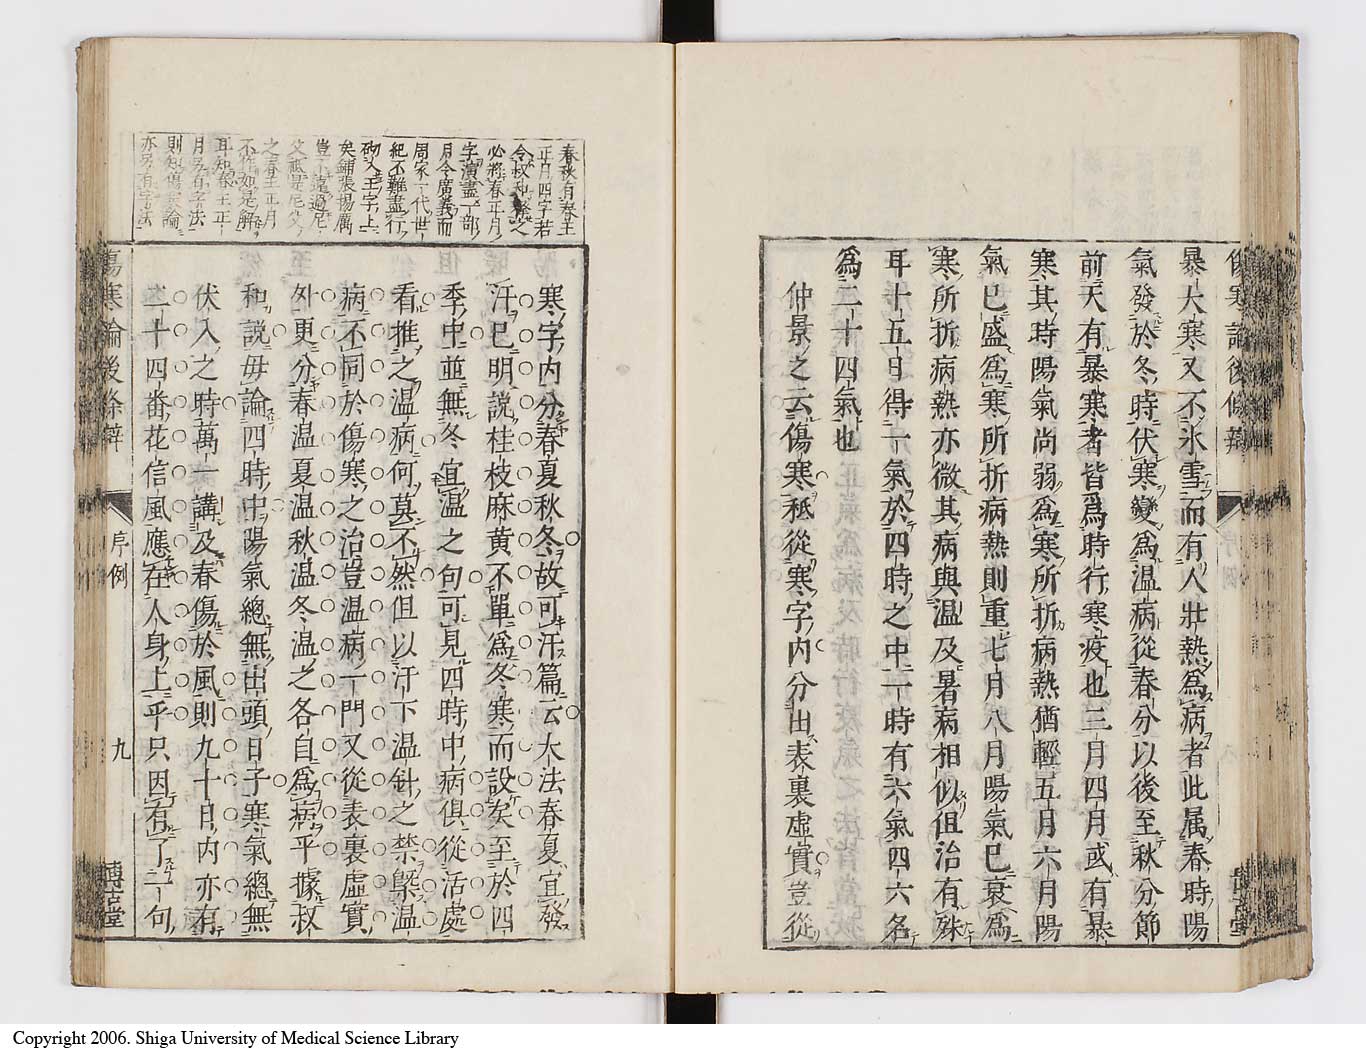 傷寒論後條辯
暴大寒又不氷雪而有人壯熱爲病者此属春時陽
氣發於冬時伏寒變爲温病從春分以後至秋分節
前天有暴寒者皆爲時行寒疫也三月四月或有暴
寒其時陽氣尚弱爲寒所折病熱猶輕五月六月陽
氣已盛爲寒所折病熱則重七月八月陽氣已衰爲
寒所折病熱亦微其病與温及暑病相似但治有殊
耳十五日得一氣於四時之中一時有六氣四六名
爲二十四氣也
仲景之云傷寒秖從寒字内分出表裏虛實豈從
春秋有春王
正月四字若
令叔和釋之
必將春正月
字演盡一部
月令廣義而
周家一代世
紀不難盡行
砌入王字上
矣鋪張揚厲
豈不遠過尼
父秖是尼父
之春王正月
不作如是解
耳知春王正
月另有字法
則知傷寒論
亦另有字法
寒字内分春夏秋冬故可汗篇云大法春夏宜發
汗已明説桂枝麻黄不單爲冬寒而設矣至於四
季中並無冬宜温之句可見四時中病俱從活處
看推之温病何莫不然但以汗下温針之禁槩温
病不同於傷寒之治豈温病一門又從表裏虛實
外更分春温夏温秋温冬温之各自爲病乎據叔
和説毋論四時中陽氣總無出頭日子寒氣總無
伏入之時萬一講及春傷於風則九十日内亦有
二十四番花信風應在人身上乎只因有了二句
傷寒論後條辯
序例
九
博古堂